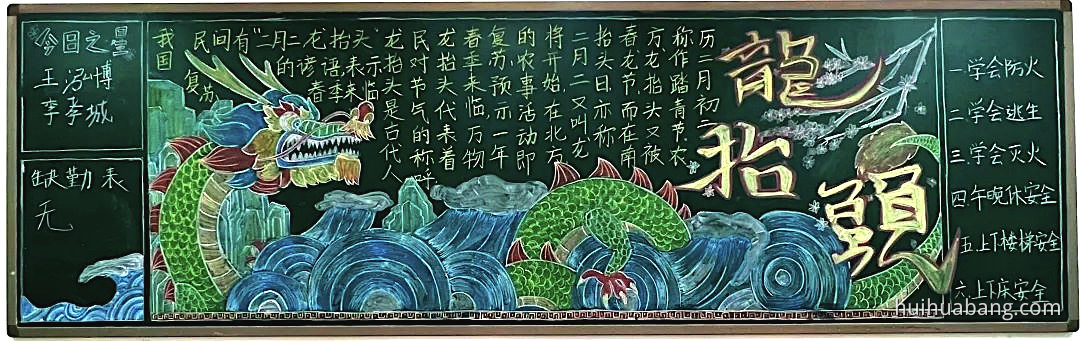 今日之星
王泓博
李孝城
缺勤表
无
龍
抬
頭
历二月初二
称作踏青节,农
方,龙抬头又被
春龙节,而在南
抬头日,亦称
二月二又叫龙
将开始,在北方
的农事活动即
复苏,预示一年
春季来临,万物
龙抬头代表着
民对节气的称呼
龙抬头是古代人
我国
民间有"二月二,龙抬头"
的谚语,表示
季来临
复苏
一学会防火
二学会逃生
三学会灭火
四午晚休安全
五上下楼梯安全
六上下床安全
huihuabang.com